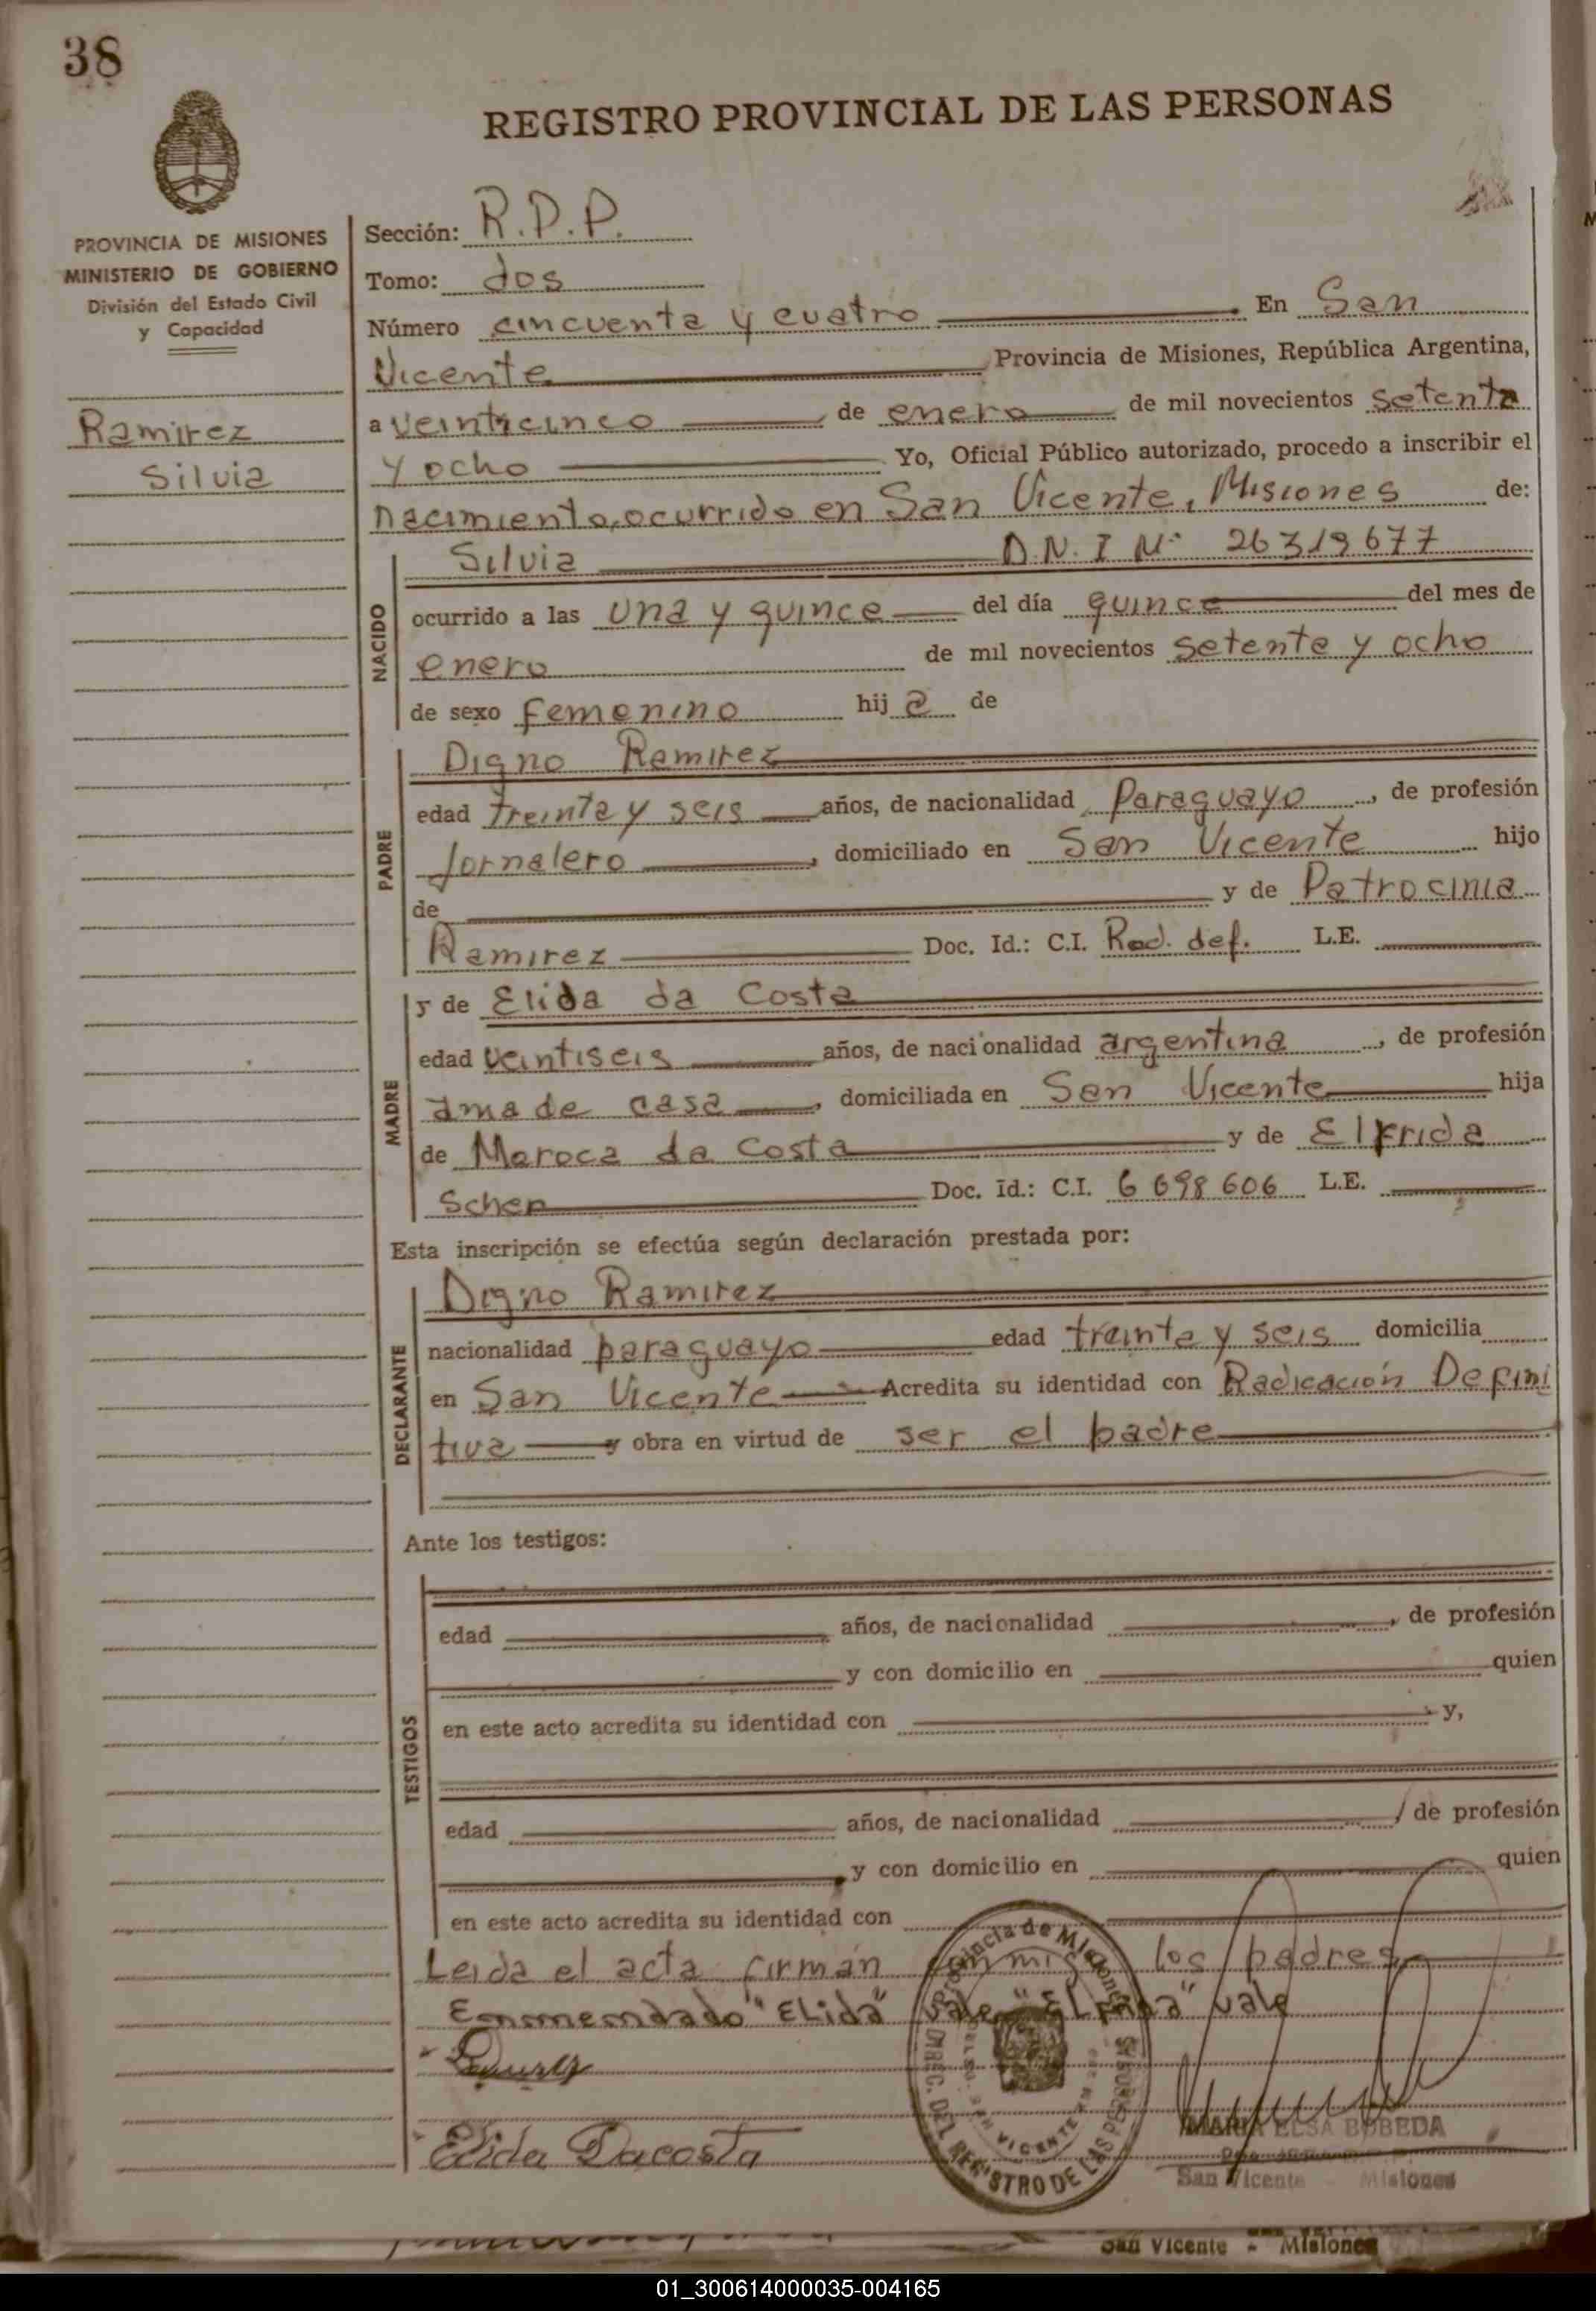 38
REGISTRO PROVINCIAL DE LAS PERSONAS
PROVINCIA DE MISIONES
MINISTERIO DE GOBIERNO
División del Estado Civil
y Capacidad
Ramirez
Silvia
Sección: R.P.P.
Tomo: dos
Número cincuenta y cuatro En San
Vicente Provincia de Misiones, República Argentina,
a veinticinco de enero de mil novecientos setenta
y ocho Yo, Oficial Público autorizado, procedo a inscribir el
nacimiento, ocurrido en San Vicente, Misiones de:
NACIDO
Silvia D.N.I Nº 26319677
ocurrido a las una y quince del día quince del mes de
enero de mil novecientos setenta y ocho
de sexo femenino hija de
PADRE
Digno Ramirez
edad treinta y seis años, de nacionalidad Paraguayo, de profesión
Jornalero, domiciliado en San Vicente hijo
de y de Patrocinia
Ramirez Doc. Id.: C.I. Rad. def. L.E.
MADRE
y de Elida da Costa
edad veintiseis años, de nacionalidad argentina, de profesión
ama de casa, domiciliada en San Vicente hija
de Maroca da Costa y de Elfrida
Scher Doc. Id.: C.I. 6 698 606 L.E.
Esta inscripción se efectúa según declaración prestada por:
DECLARANTE
Digno Ramirez
nacionalidad paraguayo edad treinta y seis domicilia
en San Vicente Acredita su identidad con Radicación Defini
tiva y obra en virtud de ser el padre
Ante los testigos:
TESTIGOS
edad años, de nacionalidad , de profesión
y con domicilio en quien
en este acto acredita su identidad con y,
edad años, de nacionalidad de profesión
y con domicilio en quien
en este acto acredita su identidad con
Leida el acta firman conmigo los padres
Enmendado "Elida" vale "Elfrida" vale
Elida Dacosta
Provincia de Misiones
DIREC. DEL REGISTRO DE LAS PERSONAS
SAN VICENTE
MARIA ELSA BOBEDA
San Vicente - Misiones
San Vicente - Misiones
01_300614000035-004165